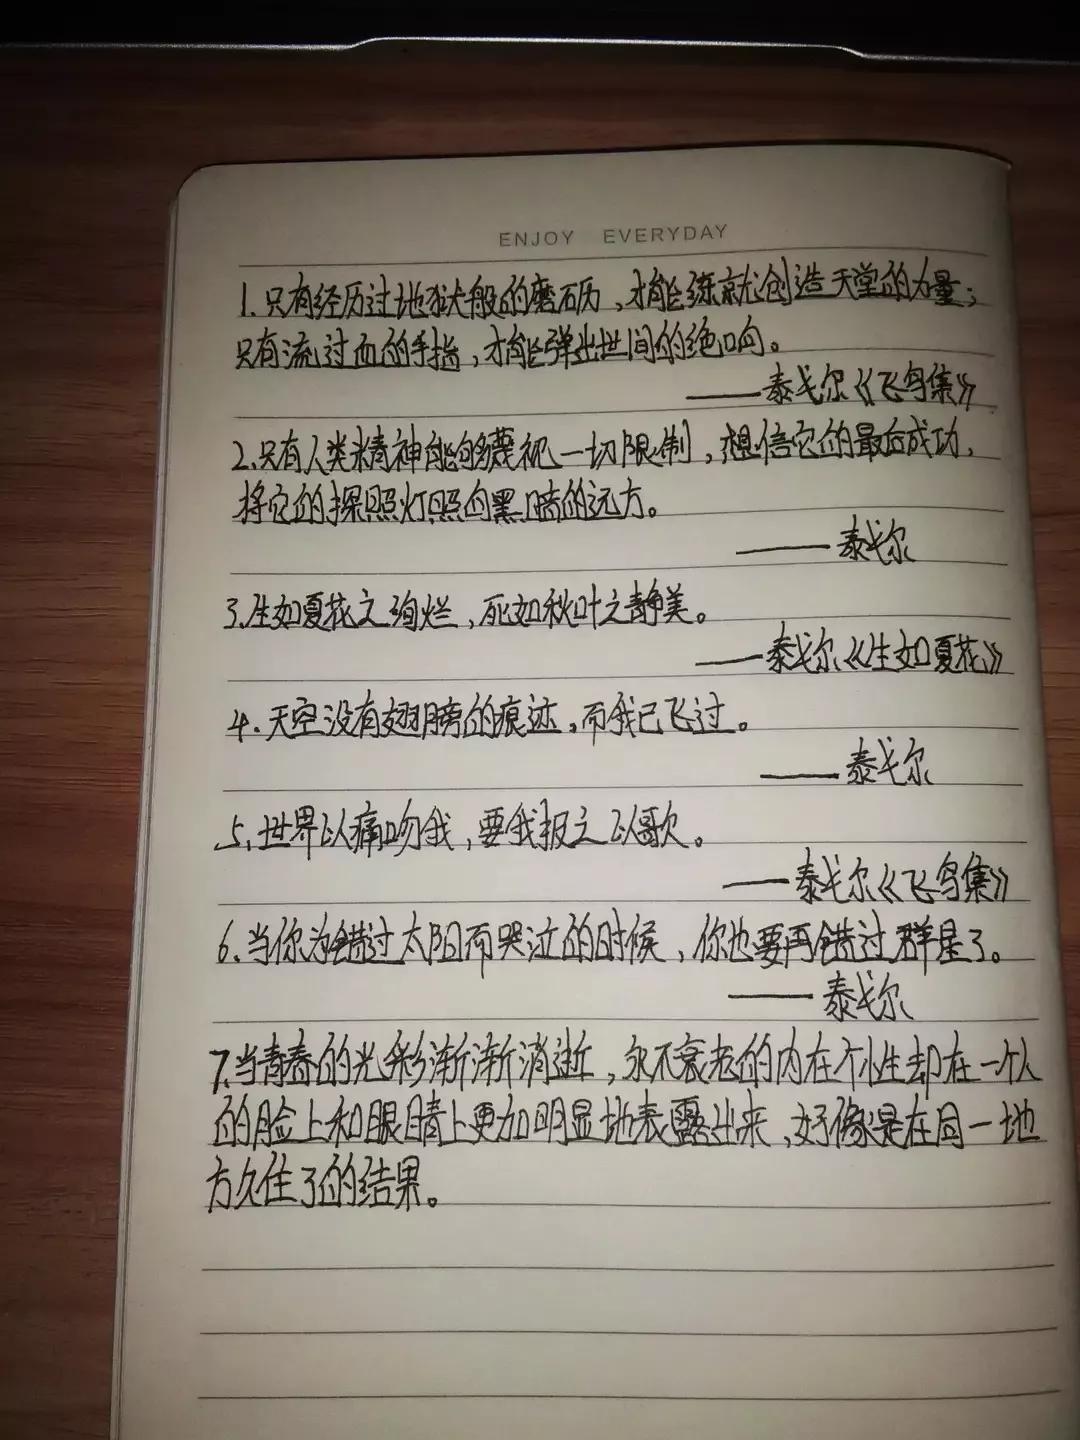 ENJOY EVERYDAY
1.只有经历过地狱般的磨砺,才能练就创造天堂的力量;
只有流过血的手指,才能弹出世间的绝响。
——泰戈尔《飞鸟集》
2.只有人类精神能够蔑视一切限制,想信它的最后成功,
将它的探照灯照向黑暗的远方。
——泰戈尔
3.生如夏花之绚烂,死如秋叶之静美。
——泰戈尔《生如夏花》
4.天空没有翅膀的痕迹,而我已飞过。
——泰戈尔
5.世界以痛吻我,要我报之以歌。
——泰戈尔《飞鸟集》
6.当你为错过太阳而哭泣的时候,你也要再错过群星了。
——泰戈尔
7.当青春的光彩渐渐消逝,永不衰老的内在个性却在一个人
的脸上和眼睛上更加明显地表露出来,好像是在同一地
方久住了的结果。